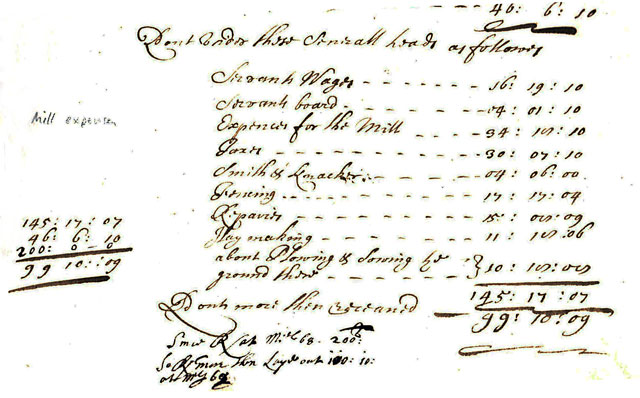 46: 6: 10
Dont under these Generall heads as followes
Servants Wages - - - - - - 16: 19: 10
Servants board - - - - - - 04: 01: 10
Mill expenses
Expences for the Mill - - - - 34: : 10
Taxes - - - - - - 30: 07: 10
Smith & - - - - 04: 06: 00
Fencing - - - - - - 17: 17: 04
Repaires - - - - - - 15: : 09
Hay making - - - - 11: : 06
about Plowing & Sowing the
ground there - - - 10:
145: 17: 07
46: 6: 10
200: 0 - 0
99 10: 09
145: 17: 07
Dont more then receaved - 99: 10: 09
Since at 68 - 200:
So more then Layd out 100: 10:
at 69